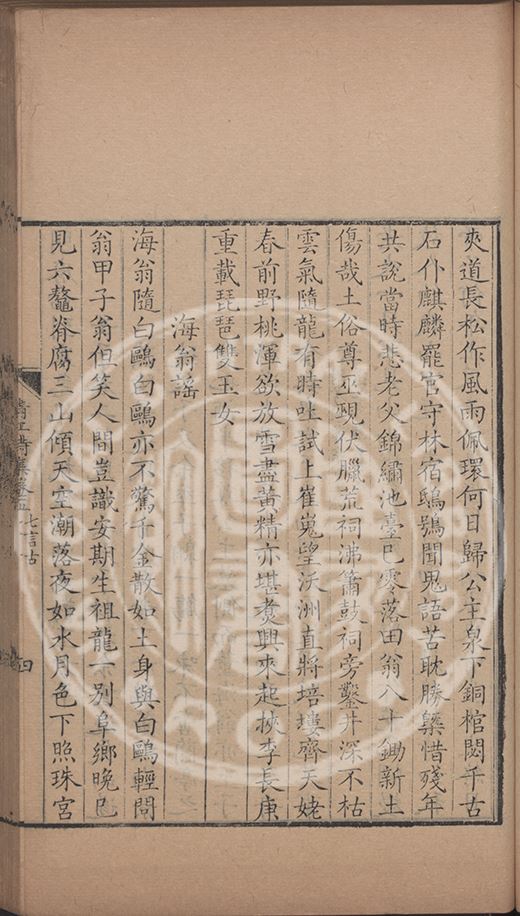 夾道長松作風雨佩環何日歸公主泉下銅棺閟千古
石仆麒麟罷官守林宿鴟鴞聞鬼語苦耽勝槩惜殘年
共說當時悲老父錦繡池臺已零落田翁八十鋤新土
傷哉土俗尊巫覡伏臘荒祠沸簫鼓祠旁鑿井深不枯
雲氣隨龍有時吐試上崔嵬望沃洲直將培塿齊天姥
春前野桃渾欲放雪盡黃精亦堪煑興來起挾李長庚
重載琵琶雙玉女
海翁謠
海翁隨白鷗白鷗亦不驚千金散如土身與白鷗輕問
翁甲子翁但笑人間豈識安期生祖龍一別阜鄉晚已
見六鰲脊腐三山傾天空潮落夜如水月色下照珠宮
七言古
四